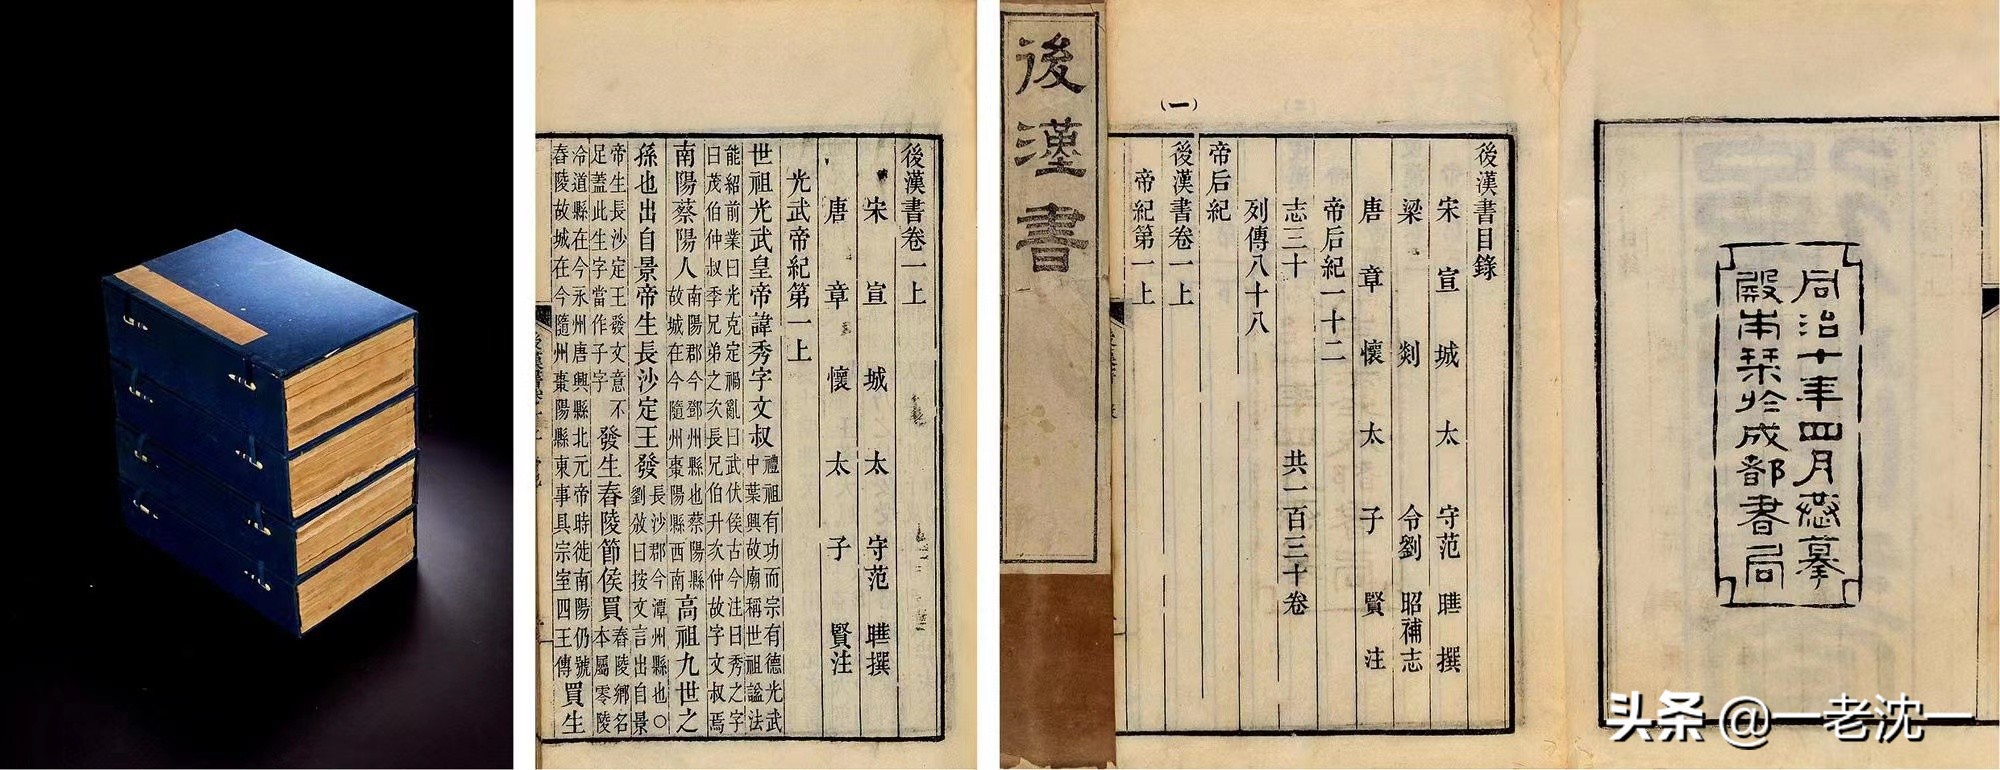 後漢書卷一上
宋宣城太守范曄撰
唐章懷太子賢注
光武帝紀第一上
世祖光武皇帝諱秀字文叔禮祖有功而宗有德光武中葉興故廟稱世祖謚法
能紹前業曰光克定禍亂曰武伏侯古今注曰秀之字曰茂伯仲叔季兄弟之次長兄伯升次仲故字文叔焉
南陽蔡陽人南陽郡今鄧州縣也蔡陽縣故城在今隨州棗陽縣西南高祖九世之
孫也出自景帝生長沙定王發長沙郡今潭州縣也○劉攽曰按文言出自景
帝生長沙定王發文意不足蓋此生字當作子字發生舂陵節侯買舂陵鄉名本屬零陵
泠道縣在今永州唐興縣北元帝時徙南陽仍號舂陵故城在今隨州棗陽縣東事具宗室四王傳買生
後漢書
(一)
後漢書目錄
宋宣城太守范曄撰
梁剡令劉昭補志
唐章懷太子賢注
帝后紀一十二
志三十
列傳八十八
共一百三十卷
帝后紀
後漢書卷一上
帝紀第一上
同治十年四月恭摹
殿本栞於成都書局
头条 @一老沈一